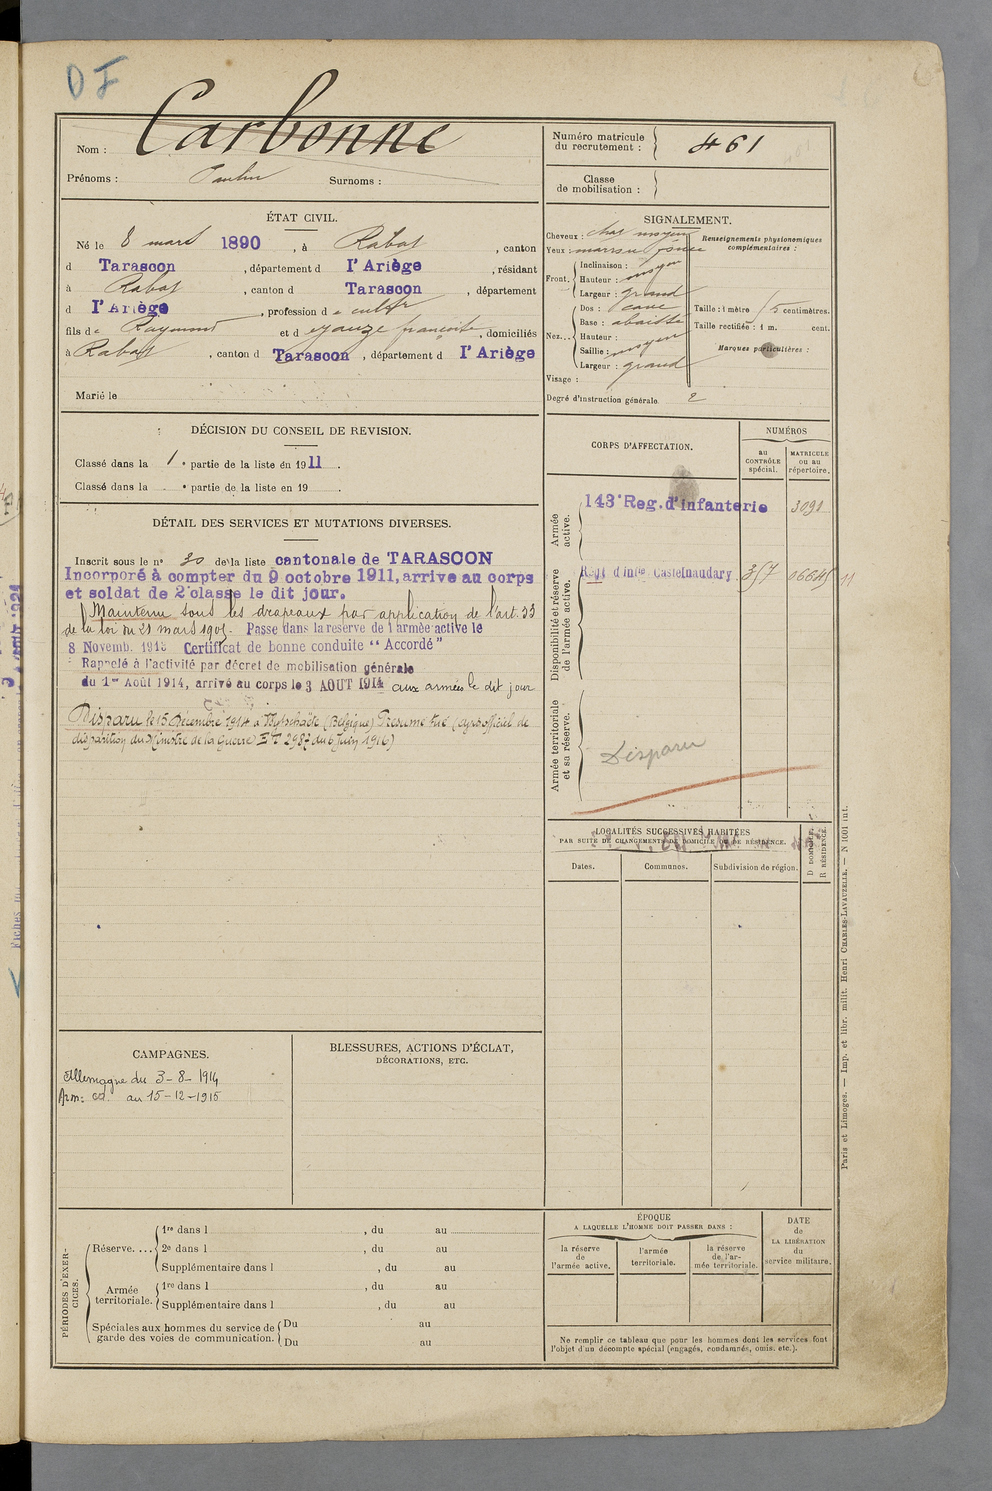 DF
Nom : Carbonne
Prénoms : Paulin Surnoms :
Numéro matricule du recrutement : 461
Classe de mobilisation :
ÉTAT CIVIL.
Né le 8 mars 1890, à Rabat, canton
d Tarascon, département d l'Ariège, résidant
à Rabat, canton d Tarascon, département
d l'Ariège, profession d e cultr
fils de Raymond et d eyauze françoise, domiciliés
à Rabat, canton d Tarascon, département d l'Ariège
Marié le
SIGNALEMENT.
Cheveux : chat moyen
Yeux : marron
Renseignements physionomiques complémentaires :
Front. Inclinaison : moyen
Hauteur : moyen
Largeur : grand
Nez... Dos : cave
Base : abaissée
Hauteur :
Saillie : moyen
Largeur : grand
Visage :
Taille : 1 mètre 5 centimètres.
Taille rectifiée : 1 m. cent.
Marques particulières :
Degré d'instruction générale 2
DÉCISION DU CONSEIL DE REVISION.
Classé dans la 1e partie de la liste en 1911.
Classé dans la e partie de la liste en 19 .
DÉTAIL DES SERVICES ET MUTATIONS DIVERSES.
Inscrit sous le n° 30 de la liste cantonale de TARASCON
Incorporé à compter du 9 octobre 1911, arrive au corps
et soldat de 2e classe le dit jour.
Maintenu sous les drapeaux par application de l'art. 33
de la loi du 21 mars 1905. Passe dans la reserve de l'armée active le
8 Novemb. 1913 Certificat de bonne conduite "Accordé"
Rappelé à l'activité par décret de mobilisation générale
du 1er Août 1914, arrivé au corps le 3 AOUT 1914 aux armées le dit jour
Disparu le 15 Décembre 1914 à (Belgique) Présumé tué (avis officiel de
disparition du Ministre de la Guerre ET 2982 du 6 juin 1916)
CORPS D'AFFECTATION.
NUMÉROS
au CONTRÔLE spécial.
MATRICULE ou au répertoire.
Armée active.
143e Reg. d'infanterie 3091
Disponibilité et réserve de l'armée active.
Regt d'Infie Castelnaudary 357 06645 11
Armée territoriale et sa réserve.
Disparu
LOCALITÉS SUCCESSIVES HABITÉES
PAR SUITE DE CHANGEMENTS DE DOMICILE OU DE RÉSIDENCE.
Dates. Communes. Subdivision de région.
D DOMICILE.
R RÉSIDENCE.
CAMPAGNES.
Allemagne du 3-8-1914
au 15-12-1915
BLESSURES, ACTIONS D'ÉCLAT,
DÉCORATIONS, ETC.
PÉRIODES D'EXERCICES.
Réserve.... 1re dans l , du au
2e dans l , du au
Supplémentaire dans l , du au
Armée territoriale. 1re dans l , du au
Supplémentaire dans l , du au
Spéciales aux hommes du service de Du au
garde des voies de communication. Du au
ÉPOQUE
A LAQUELLE L'HOMME DOIT PASSER DANS :
la réserve de l'armée active.
l'armée territoriale.
la réserve de l'armée territoriale.
DATE de LA LIBÉRATION du service militaire.
Ne remplir ce tableau que pour les hommes dont les services font
l'objet d'un décompte spécial (engagés, condamnés, omis, etc.).
Paris et Limoges. — Imp. et libr. milit. Henri CHARLES-LAVAUZELLE. — N 1001 int.